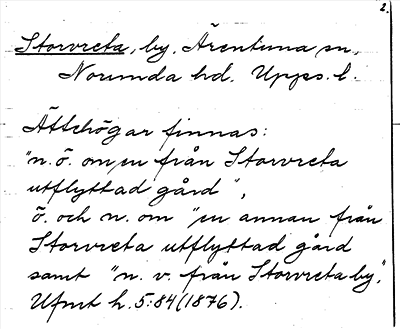 2.
Storvreta, by, Ärentuna sn,
Norunda hd. Upps. l.
Ättehögar finnas:
"n. ö. om en från Storvreta
utflyttad gård",
ö. och n. om "en annan från
Storvreta utflyttad gård
samt "n. v. från Storvreta by".
Ufmt h. 5:84 (1876).